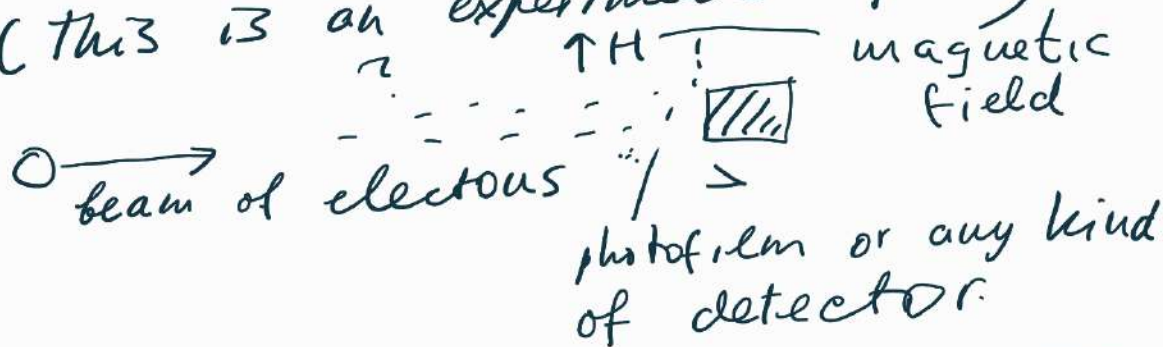 (this is an
↑H magnetic
field
beam of electous
photofilm or any kind
of detector.